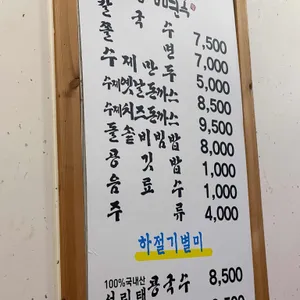 칼국수 7,500
쫄면 7,000
수제만두 5,000
수제옛날돈까스 8,500
수제치즈돈까스 9,500
돌솥비빔밥 8,000
공깃밥 1,000
음료수 1,000
주류 4,000
하절기별미
100%국내산
서리태 콩국수 8,500